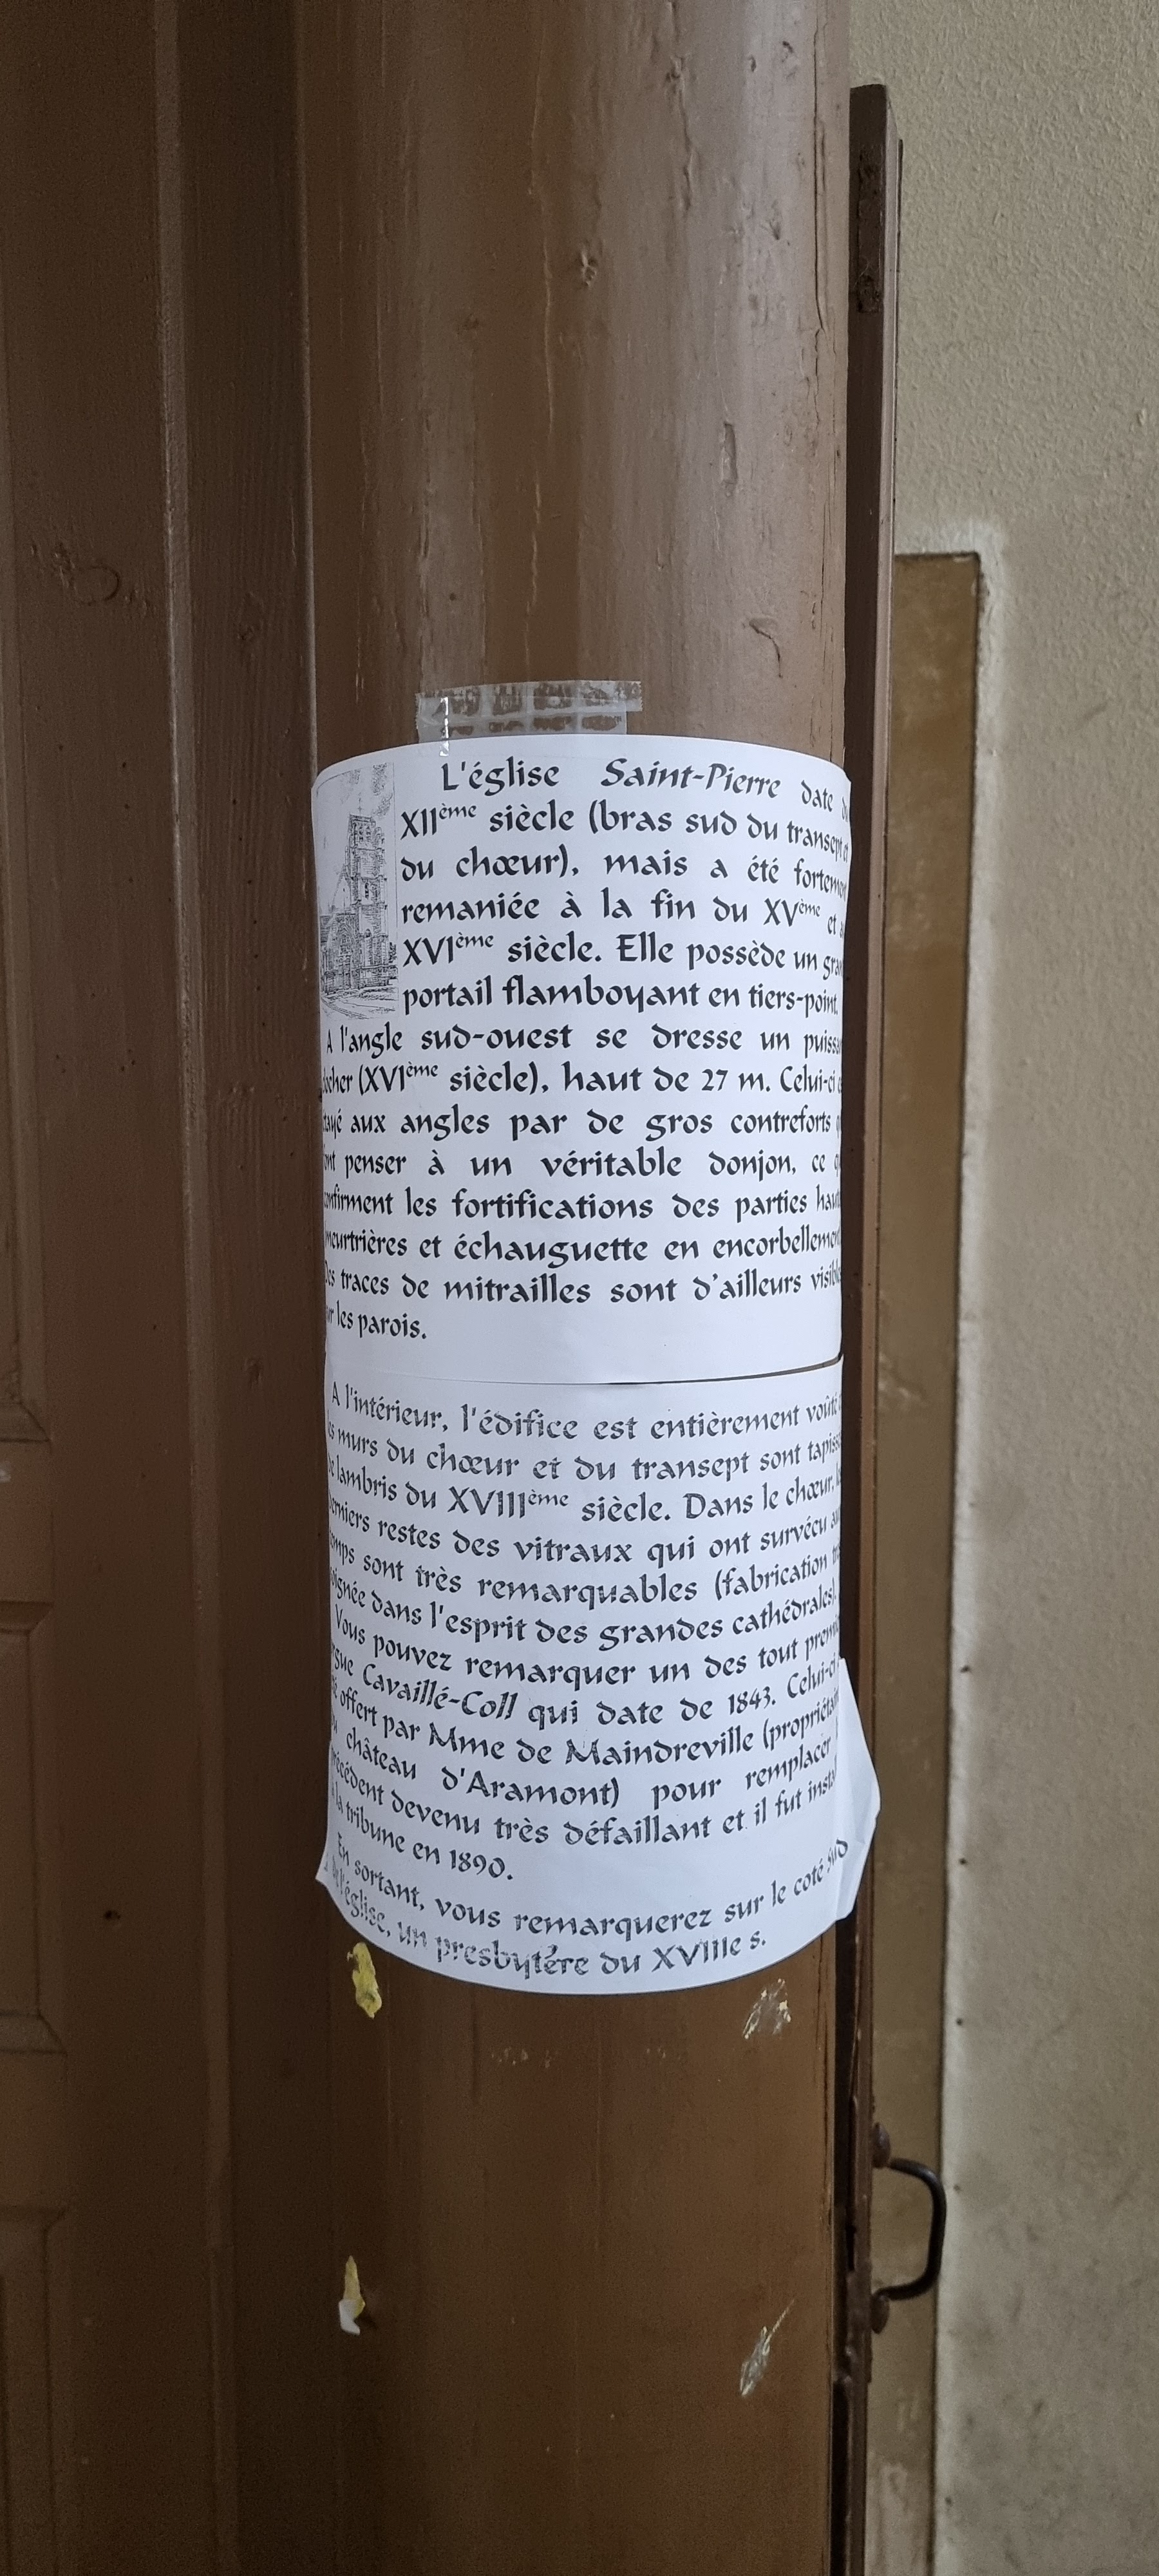 L'église Saint-Pierre date
XIIème siècle (bras sud du transept et
du chœur), mais a été
remaniée à la fin du XVème et
XVIème siècle. Elle possède un
portail flamboyant en tiers-point.
A l'angle sud-ouest se dresse un
(XVIème siècle), haut de 27 m. Celui-ci
aux angles par de gros contreforts
penser à un véritable donjon, ce
les fortifications des parties
meurtrières et échauguette en
traces de mitrailles sont d'ailleurs
les parois.
A l'intérieur, l'édifice est entièrement
murs du chœur et du transept sont
lambris du XVIIIème siècle. Dans le chœur,
restes des vitraux qui ont survécu
sont très remarquables (fabrication
dans l'esprit des grandes cathédrales).
Vous pouvez remarquer un des tout
Cavaillé-Coll qui date de 1843. Celui-ci
offert par Mme de Maindreville
château d'Aramont) pour remplacer
devenu très défaillant et il fut
la tribune en 1890.
En sortant, vous remarquerez sur le coté sud
de l'église, un presbytère du XVIIIe s.